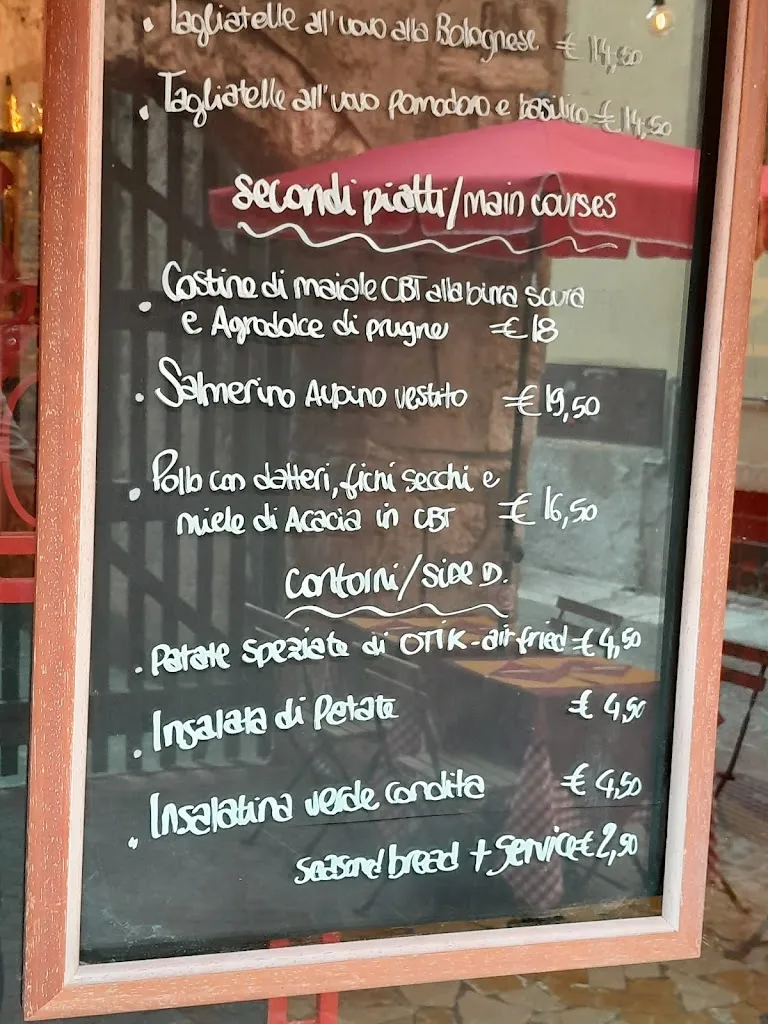 • Tagliatelle all'uovo alla Bolognese € 14,50
• Tagliatelle all'uovo pomodoro e basilico € 14,50
secondi piatti/main courses
• Costine di maiale CBT alla birra scura
e Agrodolce di prugne € 18
• Salmerino Alpino vestito € 19,50
• Pollo con datteri, fichi secchi e
miele di Acacia in CBT € 16,50
contorni/side D.
• Patate speziate di OTIK-air fried € 4,50
• Insalata di Patate € 4,50
• Insalatina verde condita € 4,50
seasond bread + service € 2,50